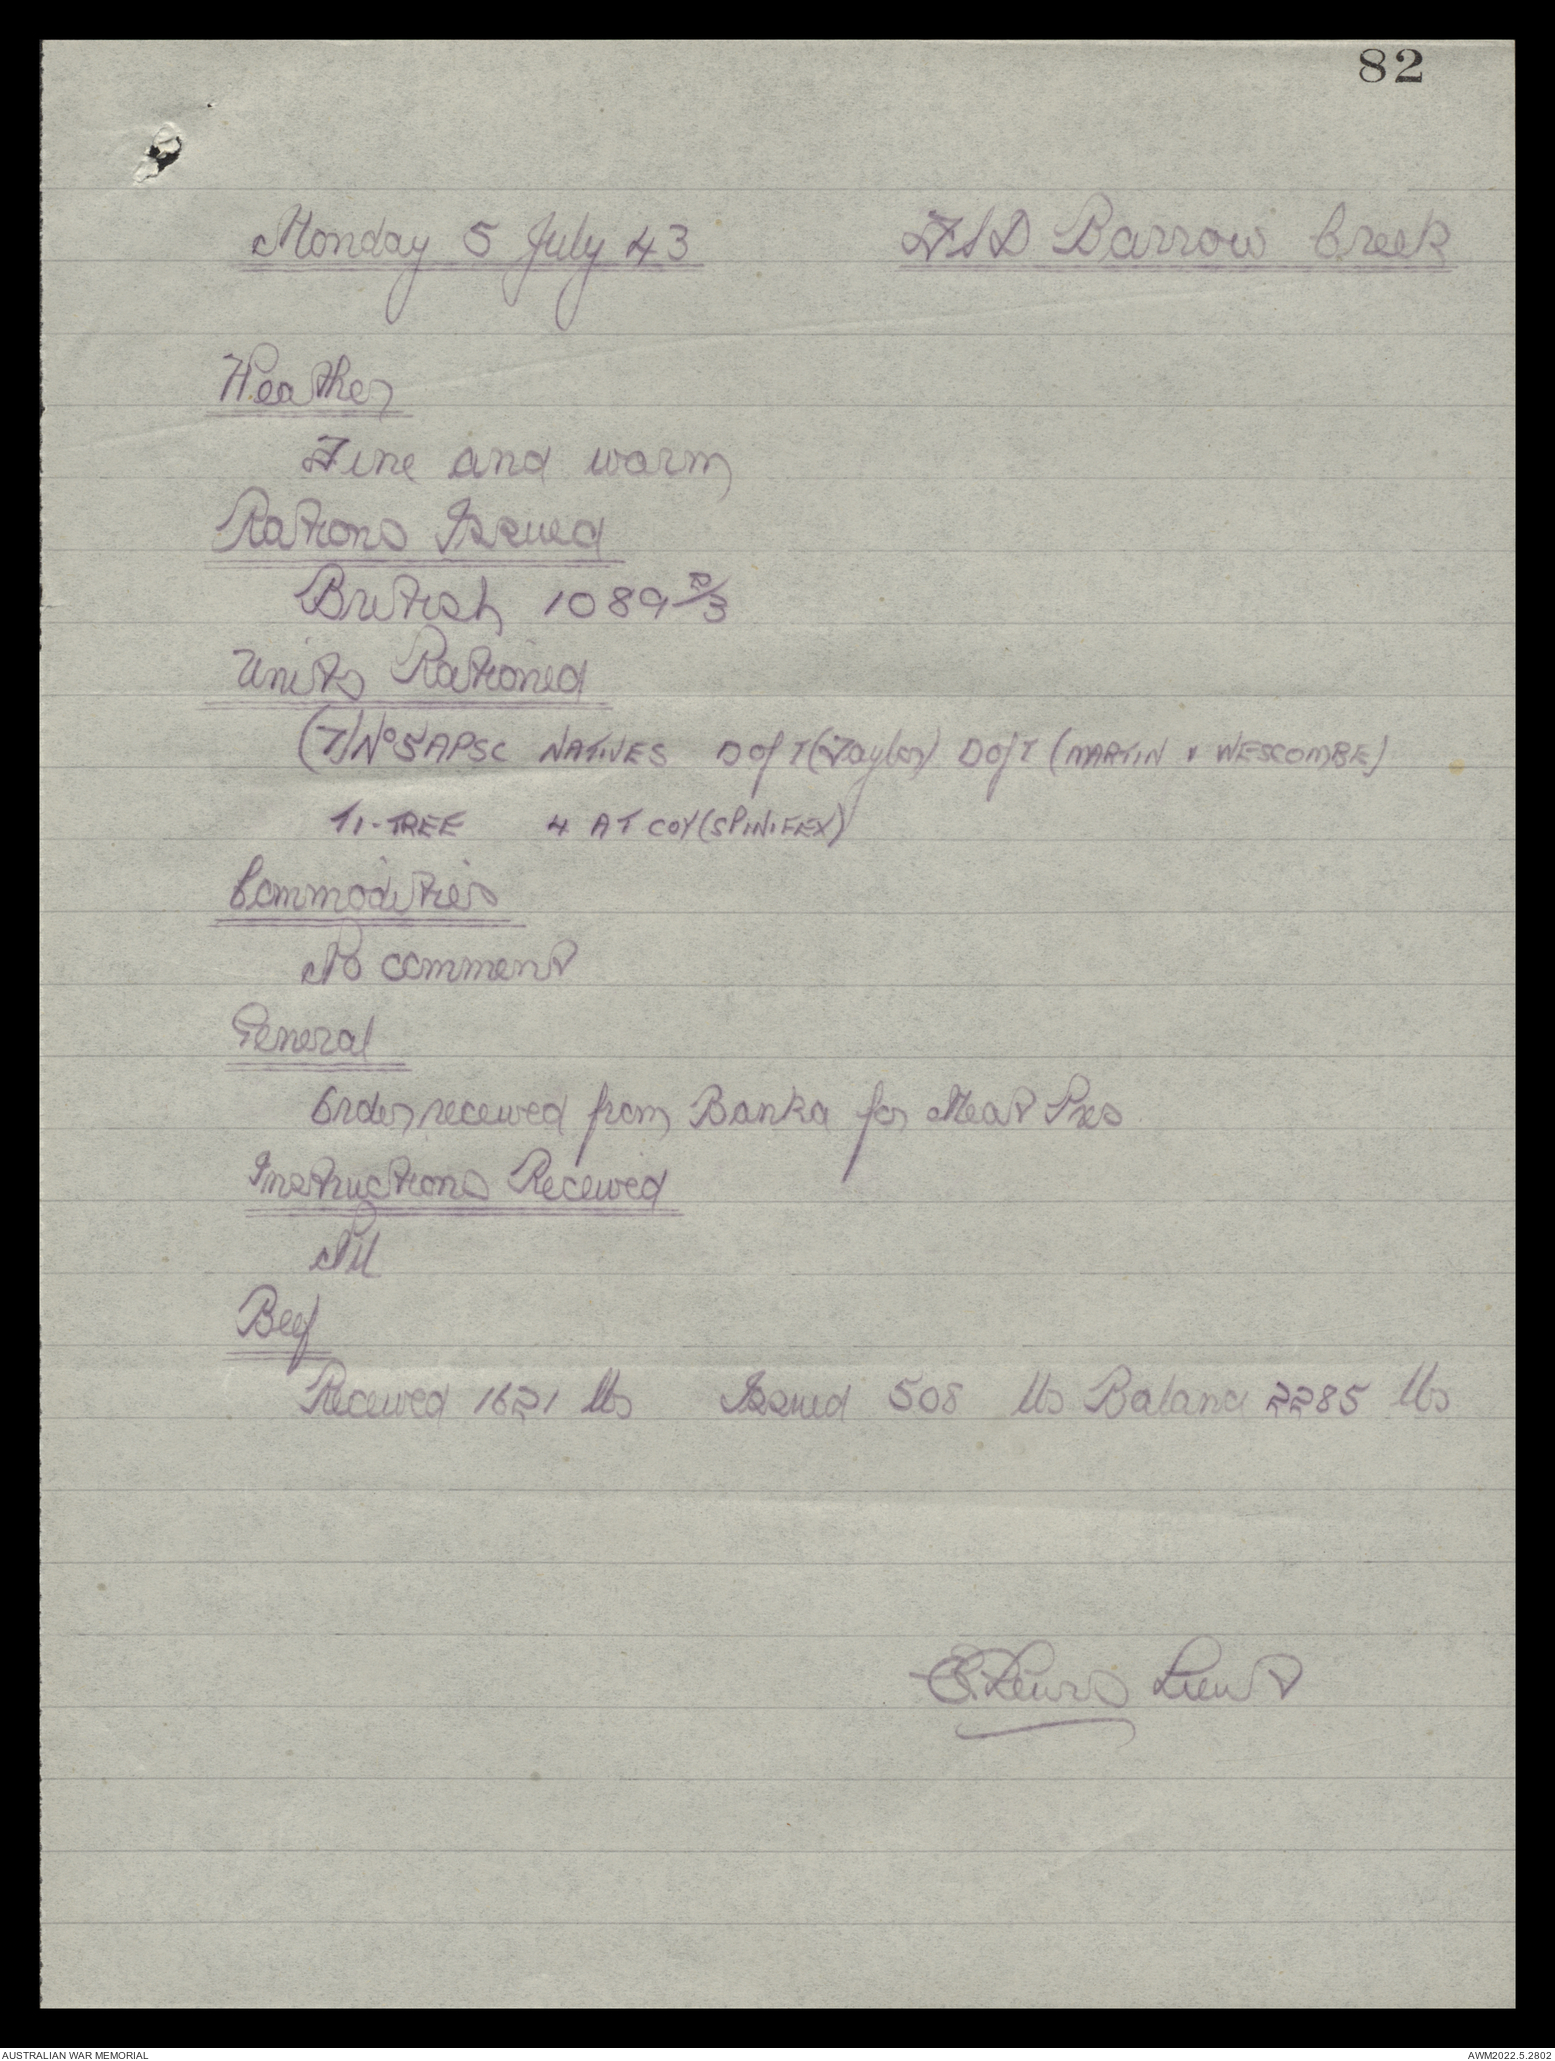 82
Monday 5 July 43 FSD Barrow Creek
Weather
Fine and warm
Rations Issued
British 1089 2/3
Units Rationed
(7) No 5 APSC NATIVES D of T (Taylor) D of T (MARTIN & WESCOMBE)
TI-TREE 4 AT COY (SPINIFEX)
Commodities
No comment
General
Order received from Banka for Meat Pres
Instructions Received
Nil
Beef
Received 1621 lbs Issued 508 lbs Balance 2285 lbs
Lewis Lieut
AUSTRALIAN WAR MEMORIAL AWM2022.5.2802